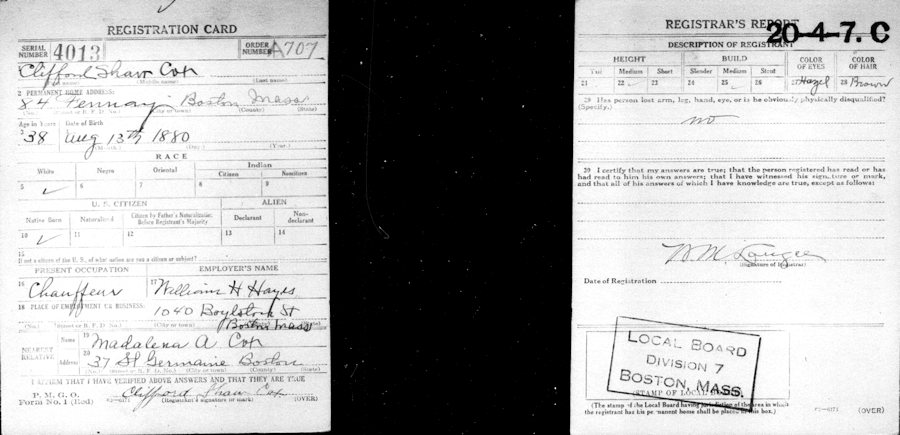 REGISTRATION CARD
SERIAL NUMBER 4013 ORDER NUMBER A707
Clifford Shaw Cox
(Middle name) (Last name)
2 PERMANENT HOME ADDRESS:
84 Boston Mass
(No.) (City or town) (County) (State)
Age in Years Date of Birth
3 38 Aug 13th 1880
(Month.) (Day.) (Year.)
RACE
White Negro Oriental Indian
Citizen Noncitizen
5 ✓ 6 7 8 9
U. S. CITIZEN ALIEN
Native Born Naturalized Citizen by Father's Naturalization Before Registrant's Majority Declarant Non-declarant
10 ✓ 11 12 13 14
15
If not a citizen of the U. S., of what nation are you a citizen or subject?
PRESENT OCCUPATION EMPLOYER'S NAME
16 Chauffeur 17 William H Hayes
18 PLACE OF EMPLOYMENT OR BUSINESS:
1040 Boylston St
Boston Mass
(No.) (Street or R. F. D. No.) (City or town) (County) (State)
NEAREST RELATIVE Name 19 Madalena A Cox
Address 20 37 St Germaine Boston
(No.) (Street or R. F. D. No.) (City or town) (County) (State)
I AFFIRM THAT I HAVE VERIFIED ABOVE ANSWERS AND THAT THEY ARE TRUE
P. M. G. O.
Form No. 1 (Red) Clifford Shaw Cox
(Registrant's signature or mark) (OVER)
REGISTRAR'S REPORT
20-4-7. C
DESCRIPTION OF REGISTRANT
HEIGHT BUILD COLOR OF EYES COLOR OF HAIR
Tall Medium Short Slender Medium Stout
21 22 ✓ 23 24 25 ✓ 26 27 Hazel 28 Brown
29 Has person lost arm, leg, hand, eye, or is he obviously physically disqualified?
(Specify.)
no
30 I certify that my answers are true; that the person registered has read or has
had read to him his own answers; that I have witnessed his signature or mark,
and that all of his answers of which I have knowledge are true, except as follows:
(Signature of Registrar)
Date of Registration
LOCAL BOARD
DIVISION 7
BOSTON, MASS.
(STAMP OF LOCAL BOARD)
(The stamp of the Local Board having jurisdiction of the area in which
the registrant has his permanent home shall be placed in this box.)
(OVER)